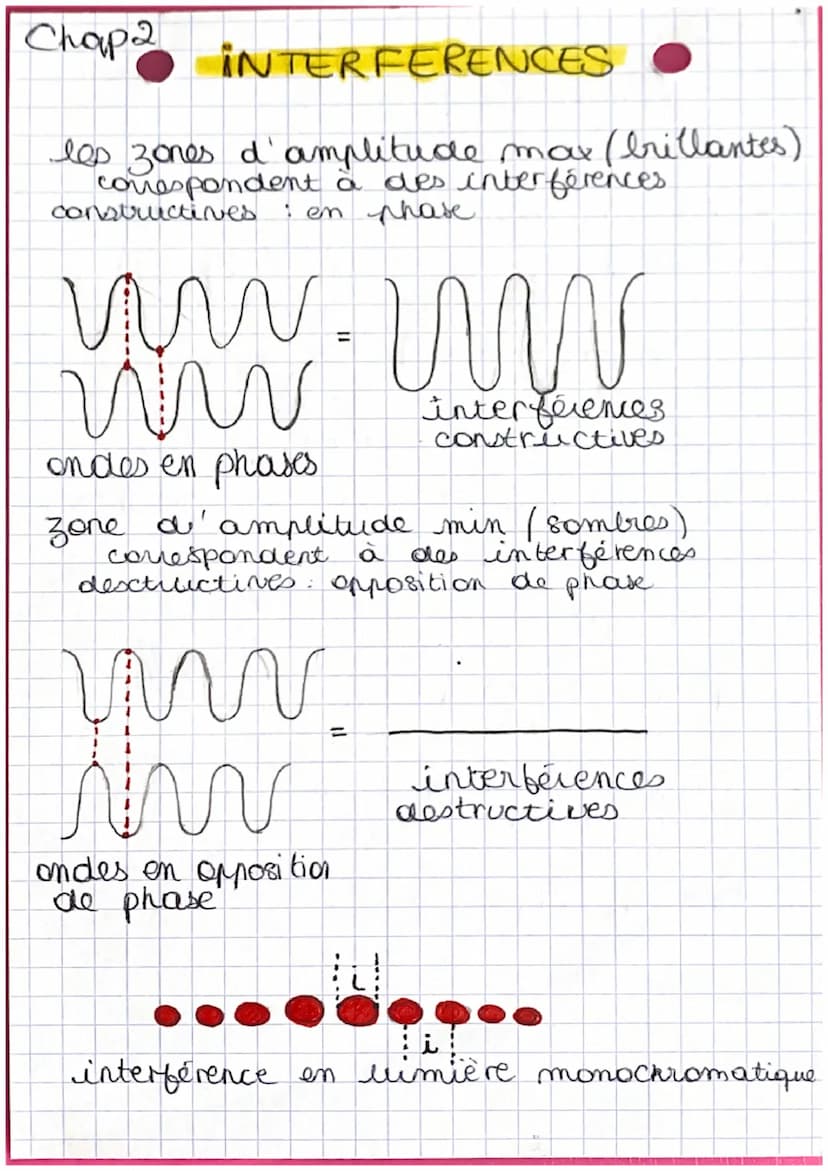 Chap 2
iNTERFERENCES
les zones d'amplitude max (brillantes)
correspondent à des interférences
constructives : en phase
=
interférences
constructives
ondes en phases
zone d'amplitude min (sombres)
correspondent à des interférences
desctructives : opposition de phase
=
interférences
destructives
ondes en opposition
de phase
i
i
interférence en lumière monochromatique